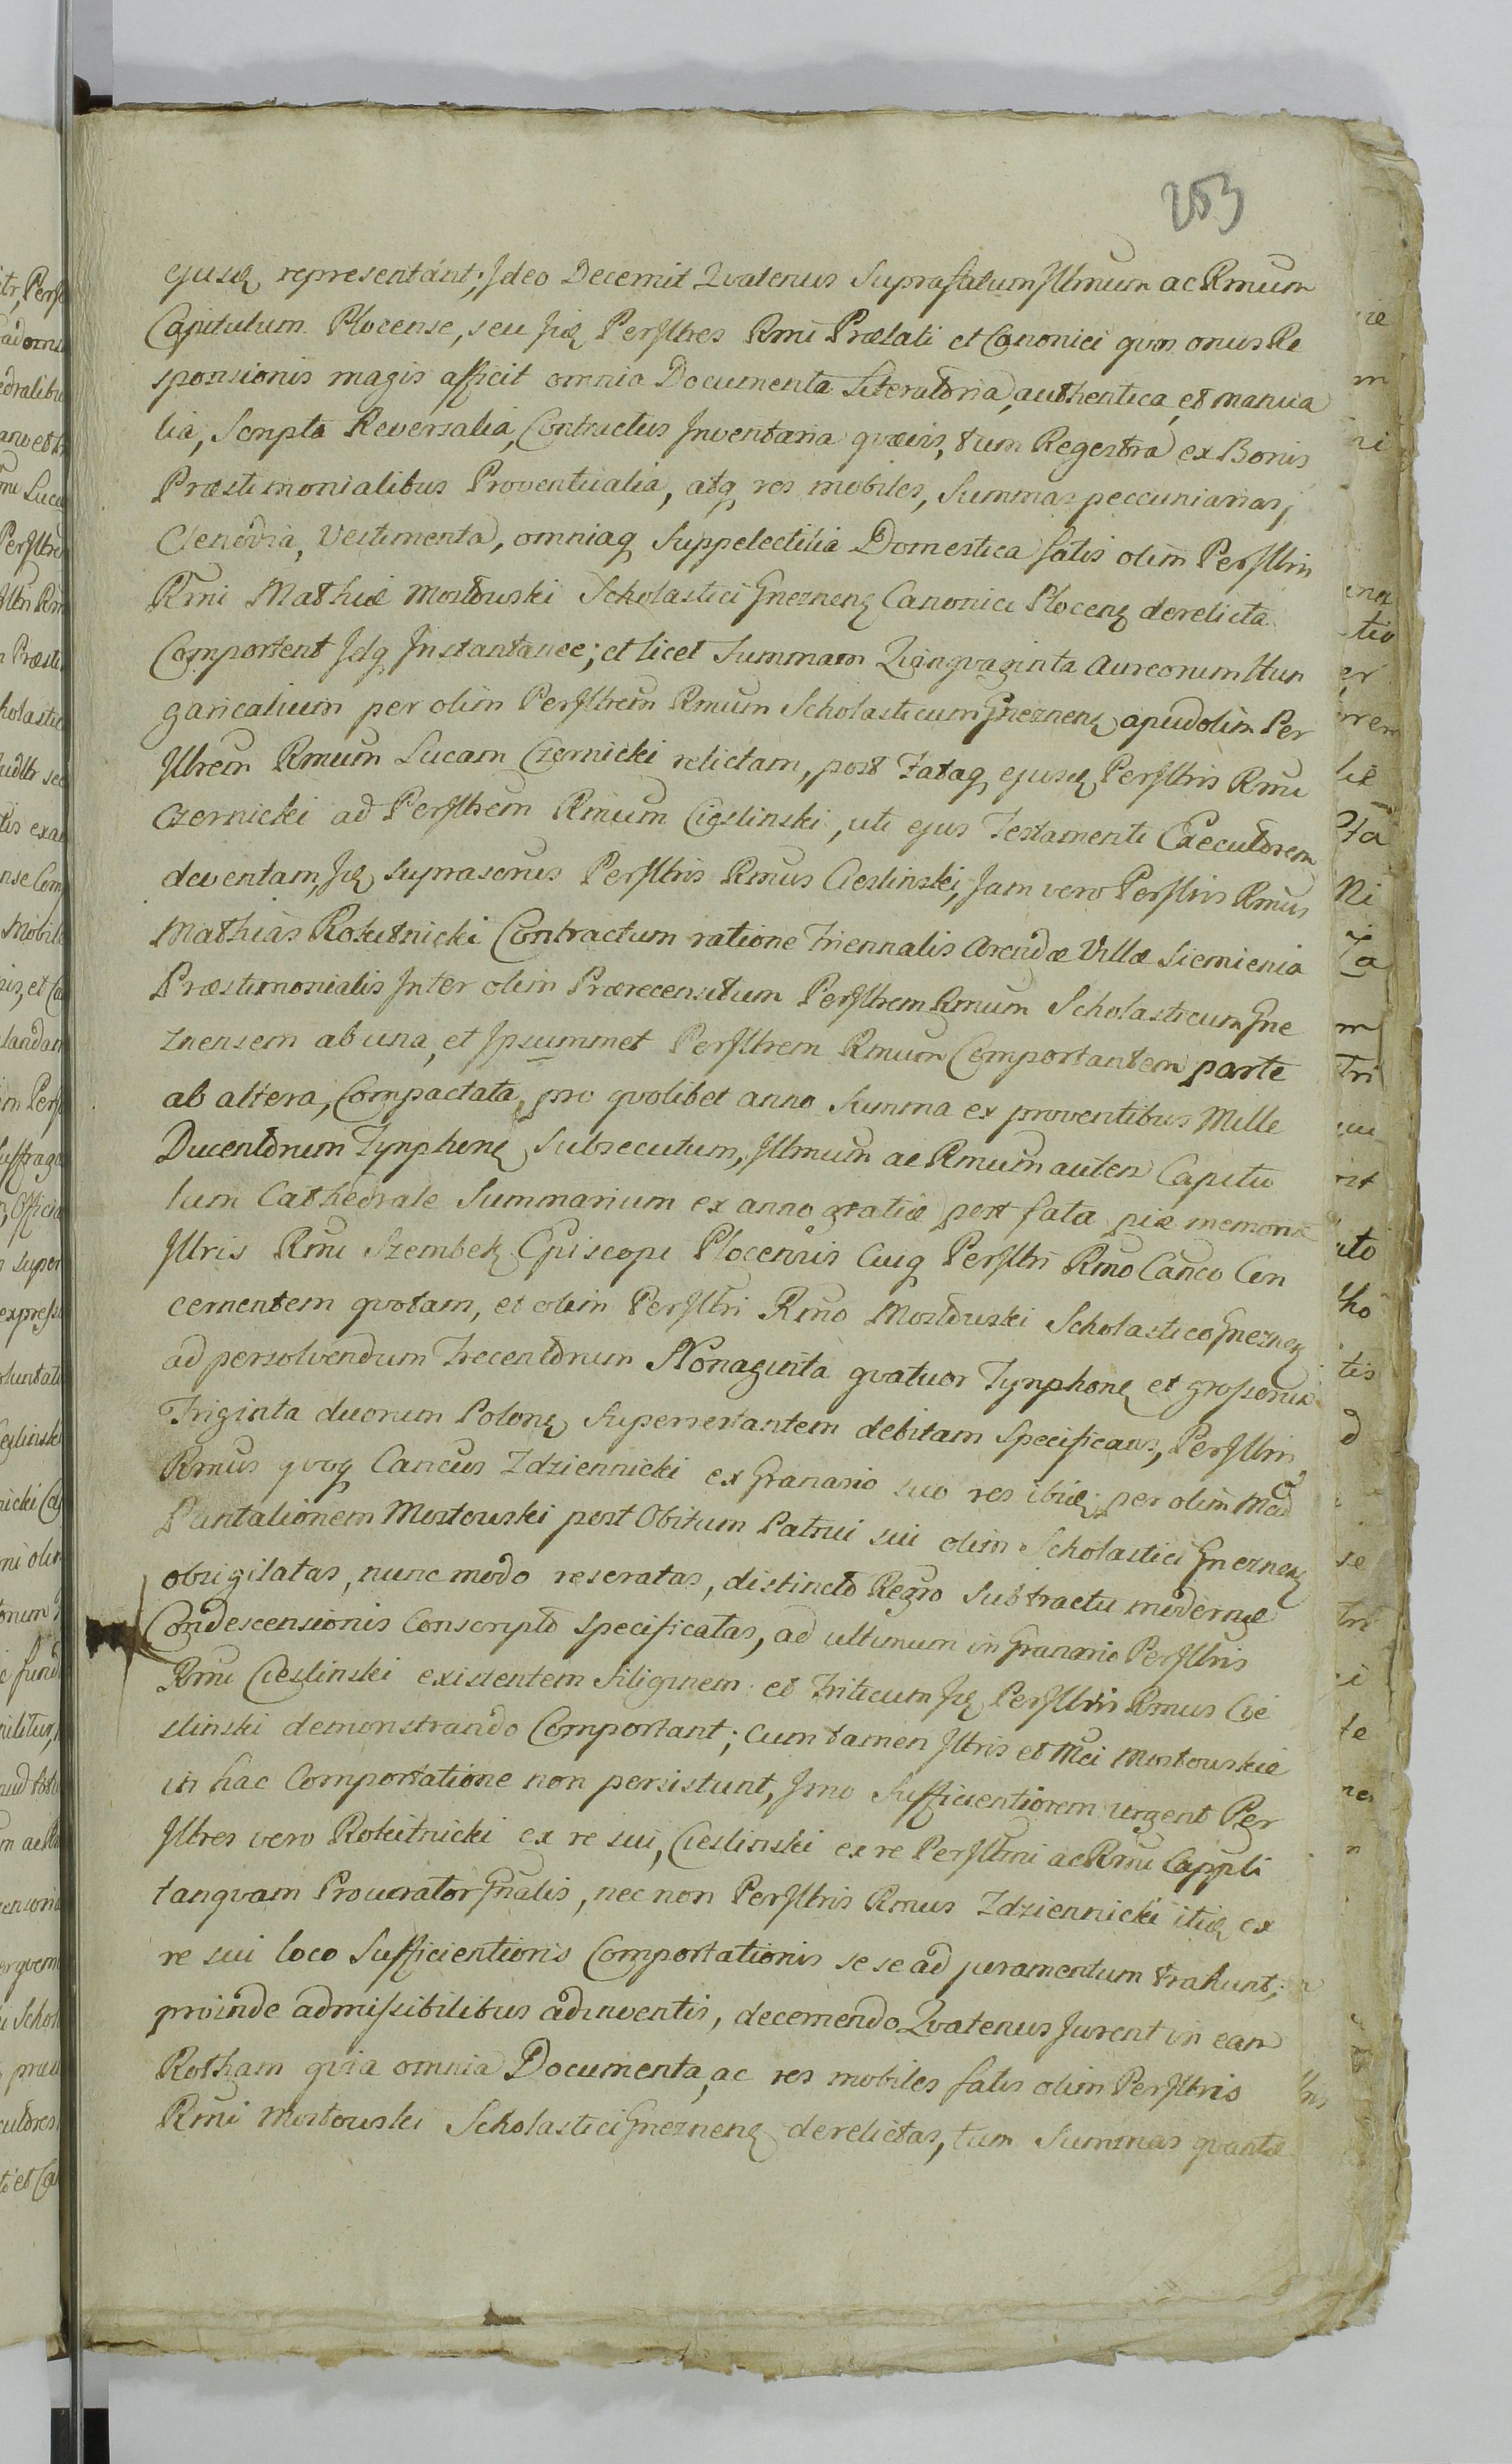 253
ejusq representant; Ideo Decernit Qvatenus Suprafatum Illmum ac Rmum
Capitulum Plocense, seu iidq PerIllres Rmi Prælati et Canonici qvos onus Re
sponsionis magis afficit omnia Documenta Literatoria, authentica, et manua
lia, Scripta Reversalia, Contractus Inventaria qvævis, tum Regestra ex Bonis
Præstimonialibus Proventualia, atq res mobiles, Summas peccuniarias,
Clenodia, Vestimenta, omniaq Suppelectilia Domestica fatis olim PerIllris
Rmi Mathiæ Mostowski Scholastici Gneznens Canonici Plocens derelicta
Comportent Idq Instantanee; et licet Summam Qvinqvaginta Aureorum Hun
garicalium per olim PerIllrem Rmum Scholasticum Gneznens apud olim Per
Illrem Rmum Lucam Czernicki relictam, post Fataq ejusd PerIllris Rmi
Czernicki ad PerIllrem Rmum Cieslinski, uti ejus Testamenti Executorem
deventam, Id Suprascrus PerIllris Rmus Cieslinski, Jam vero PerIllris Rmus
Mathias Rokitnicki Contractum ratione Triennalis Arendæ Villæ Siemienia
Præstimonialis Inter olim Prærecensitum PerIllrem Rmum Scholasticum Gne
znensem ab una, et Ipsummet PerIllrem Rmum Comportantem parte
ab altera, Compactata pro qvolibet anno Summa ex proventibus Mille
Ducentorum Tynphons Subsecutum, Illmum ac Rmum autem Capitu
lum Cathedrale Summarium ex anno gratiæ post fata piæ memoriæ
Illris Rmi Szembek Episcopi Plocensis Cuiq PerIllri Rmo Canco Con
cernentem qvotam, et olim PerIllri Rmo Mostowski Scholastico Gneznens
ad persolvendum Trecentorum Nonaginta qvatuor Tynphons et grossorum
Triginta duorum Polons Superrestantem debitam Specificans, PerIllris
Rmus qvoq Cancus Zdziennicki ex Granario suo res ibid per olim Mcd
Pantalionem Mostowski post Obitum Patrui sui olim Scholastici Gneznens
obsigilatas, nunc modo reseratas, distincto Regro Sub tractu modernæ
Condescensionis Conscripto Specificatas, ad ultimum in Granario PerIllris
Rmi Cieslinski existentem Siliginem et Triticum Id PerIllris Rmus Cie
slinski demonstrando Comportant; Cum tamen Illris et Mci Mostowskie
in hac Comportatione non persistunt, Imo Sufficientiorem urgent Per
Illres vero Rokitnicki ex re sui, Cieslinski ex re PerIllmi ac Rmi Cappli
tanqvam Procurator Gnalis, nec non PerIllris Rmus Zdziennicki itid ex
re sui loco Sufficientioris Comportationis se se ad juramentum trahunt;
proinde admissibilibus adinventis, decernendo Qvatenus Jurent in eam
Rotham qvia omnia Documenta, ac res mobiles fatis olim PerIllris
Rmi Mostowski Scholastici Gneznens derelictas, tum Summas qvantæ